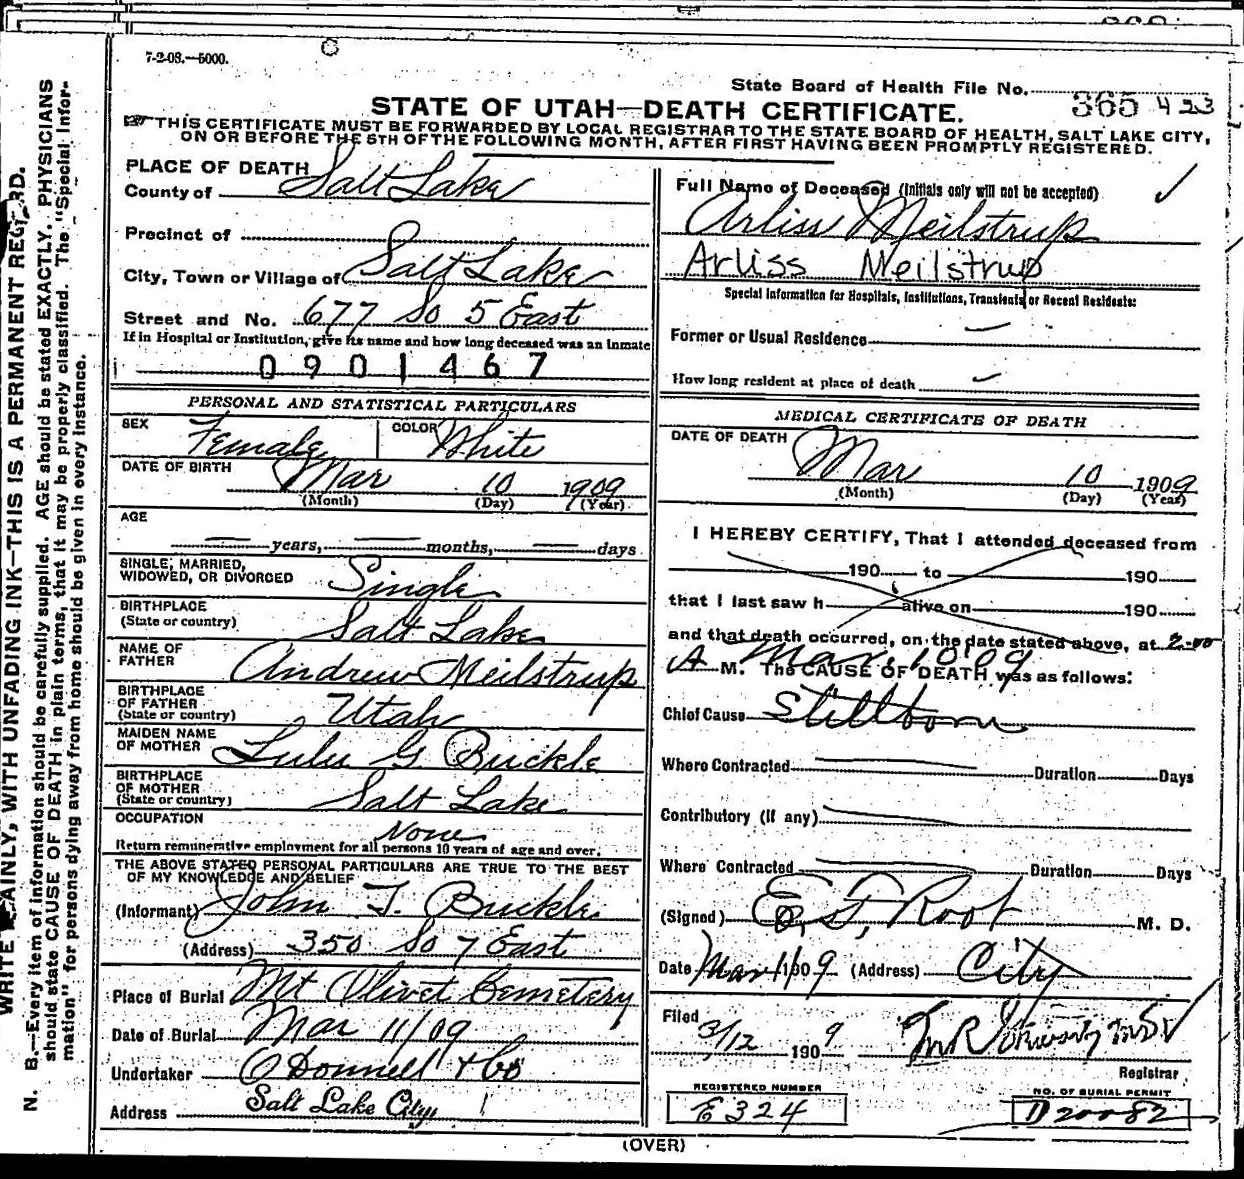 7-2-08.—5000.
State Board of Health File No. 365 423
STATE OF UTAH—DEATH CERTIFICATE.
THIS CERTIFICATE MUST BE FORWARDED BY LOCAL REGISTRAR TO THE STATE BOARD OF HEALTH, SALT LAKE CITY,
ON OR BEFORE THE 5TH OF THE FOLLOWING MONTH, AFTER FIRST HAVING BEEN PROMPTLY REGISTERED.
PLACE OF DEATH
County of Salt Lake
Precinct of
City, Town or Village of Salt Lake
Street and No. 677 So 5 East
If in Hospital or Institution, give its name and how long deceased was an inmate
0901467
PERSONAL AND STATISTICAL PARTICULARS
SEX Female COLOR White
DATE OF BIRTH Mar 10 1909
(Month) (Day) (Year)
AGE
years, months, days
SINGLE, MARRIED,
WIDOWED, OR DIVORCED Single
BIRTHPLACE
(State or country) Salt Lake
NAME OF
FATHER Andrew Meilstrup
BIRTHPLACE
OF FATHER
(State or country) Utah
MAIDEN NAME
OF MOTHER Lulu G Buckle
BIRTHPLACE
OF MOTHER
(State or country) Salt Lake
OCCUPATION None
Return remunerative employment for all persons 10 years of age and over.
THE ABOVE STATED PERSONAL PARTICULARS ARE TRUE TO THE BEST
OF MY KNOWLEDGE AND BELIEF
(Informant) John T. Buckle
(Address) 350 So 7 East
Place of Burial Mt Olivet Cemetery
Date of Burial Mar 11/09
Undertaker O'Donnell & Co
Address Salt Lake City
Full Name of Deceased (Initials only will not be accepted)
Arliss Meilstrup
Arliss Meilstrup
Special Information for Hospitals, Institutions, Transients or Recent Residents:
Former or Usual Residence
How long resident at place of death
MEDICAL CERTIFICATE OF DEATH
DATE OF DEATH Mar 10 1909
(Month) (Day) (Year)
I HEREBY CERTIFY, That I attended deceased from
190 to 190
that I last saw h alive on 190
and that death occurred, on the date stated above, at 2-00
A M. Mar. 10.09 The CAUSE OF DEATH was as follows:
Chief Cause Stillborn
Where Contracted Duration Days
Contributory (if any)
Where Contracted Duration Days
(Signed) E. F. Root M. D.
Date Mar 11 1909 (Address) City
Filed
3/12 1909
Registrar
REGISTERED NUMBER
E 324
NO. OF BURIAL PERMIT
D 20082
(OVER)
N. B.—Every item of information should be carefully supplied. AGE should be stated EXACTLY. PHYSICIANS
should state CAUSE OF DEATH in plain terms, that it may be properly classified. The "Special Infor-
mation" for persons dying away from home should be given in every instance.